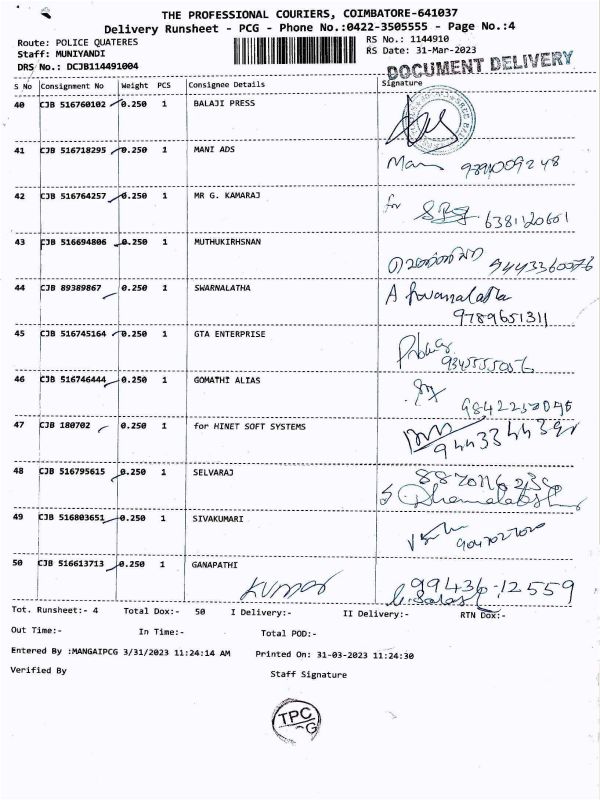 THE PROFESSIONAL COURIERS, COIMBATORE-641037
Delivery Runsheet - PCG - Phone No.:0422-3505555 - Page No.:4
Route: POLICE QUATERES RS No.: 1144910
Staff: MUNIYANDI RS Date: 31-Mar-2023
DRS No.: DCJB114491004
DOCUMENT DELIVERY
S No Consignment No Weight PCS Consignee Details Signature
40 CJB 516760102 0.250 1 BALAJI PRESS
41 CJB 516718295 0.250 1 MANI ADS
Mani
42 CJB 516764257 0.250 1 MR G. KAMARAJ
for
6381120601
43 CJB 516694806 0.250 1 MUTHUKIRHSNAN
9443360076
44 CJB 89389867 0.250 1 SWARNALATHA
A Swarnalatha
9789651311
45 CJB 516745164 0.250 1 GTA ENTERPRISE
46 CJB 516746444 0.250 1 GOMATHI ALIAS
47 CJB 180702 0.250 1 for HINET SOFT SYSTEMS
48 CJB 516795615 0.250 1 SELVARAJ
49 CJB 516803651 0.250 1 SIVAKUMARI
50 CJB 516613713 0.250 1 GANAPATHI
KUMAR 99436-12559
Tot. Runsheet:- 4 Total Dox:- 50 I Delivery:- II Delivery:- RTN Dox:-
Out Time:- In Time:- Total POD:-
Entered By :MANGAIPCG 3/31/2023 11:24:14 AM Printed On: 31-03-2023 11:24:30
Verified By Staff Signature
TPC
G